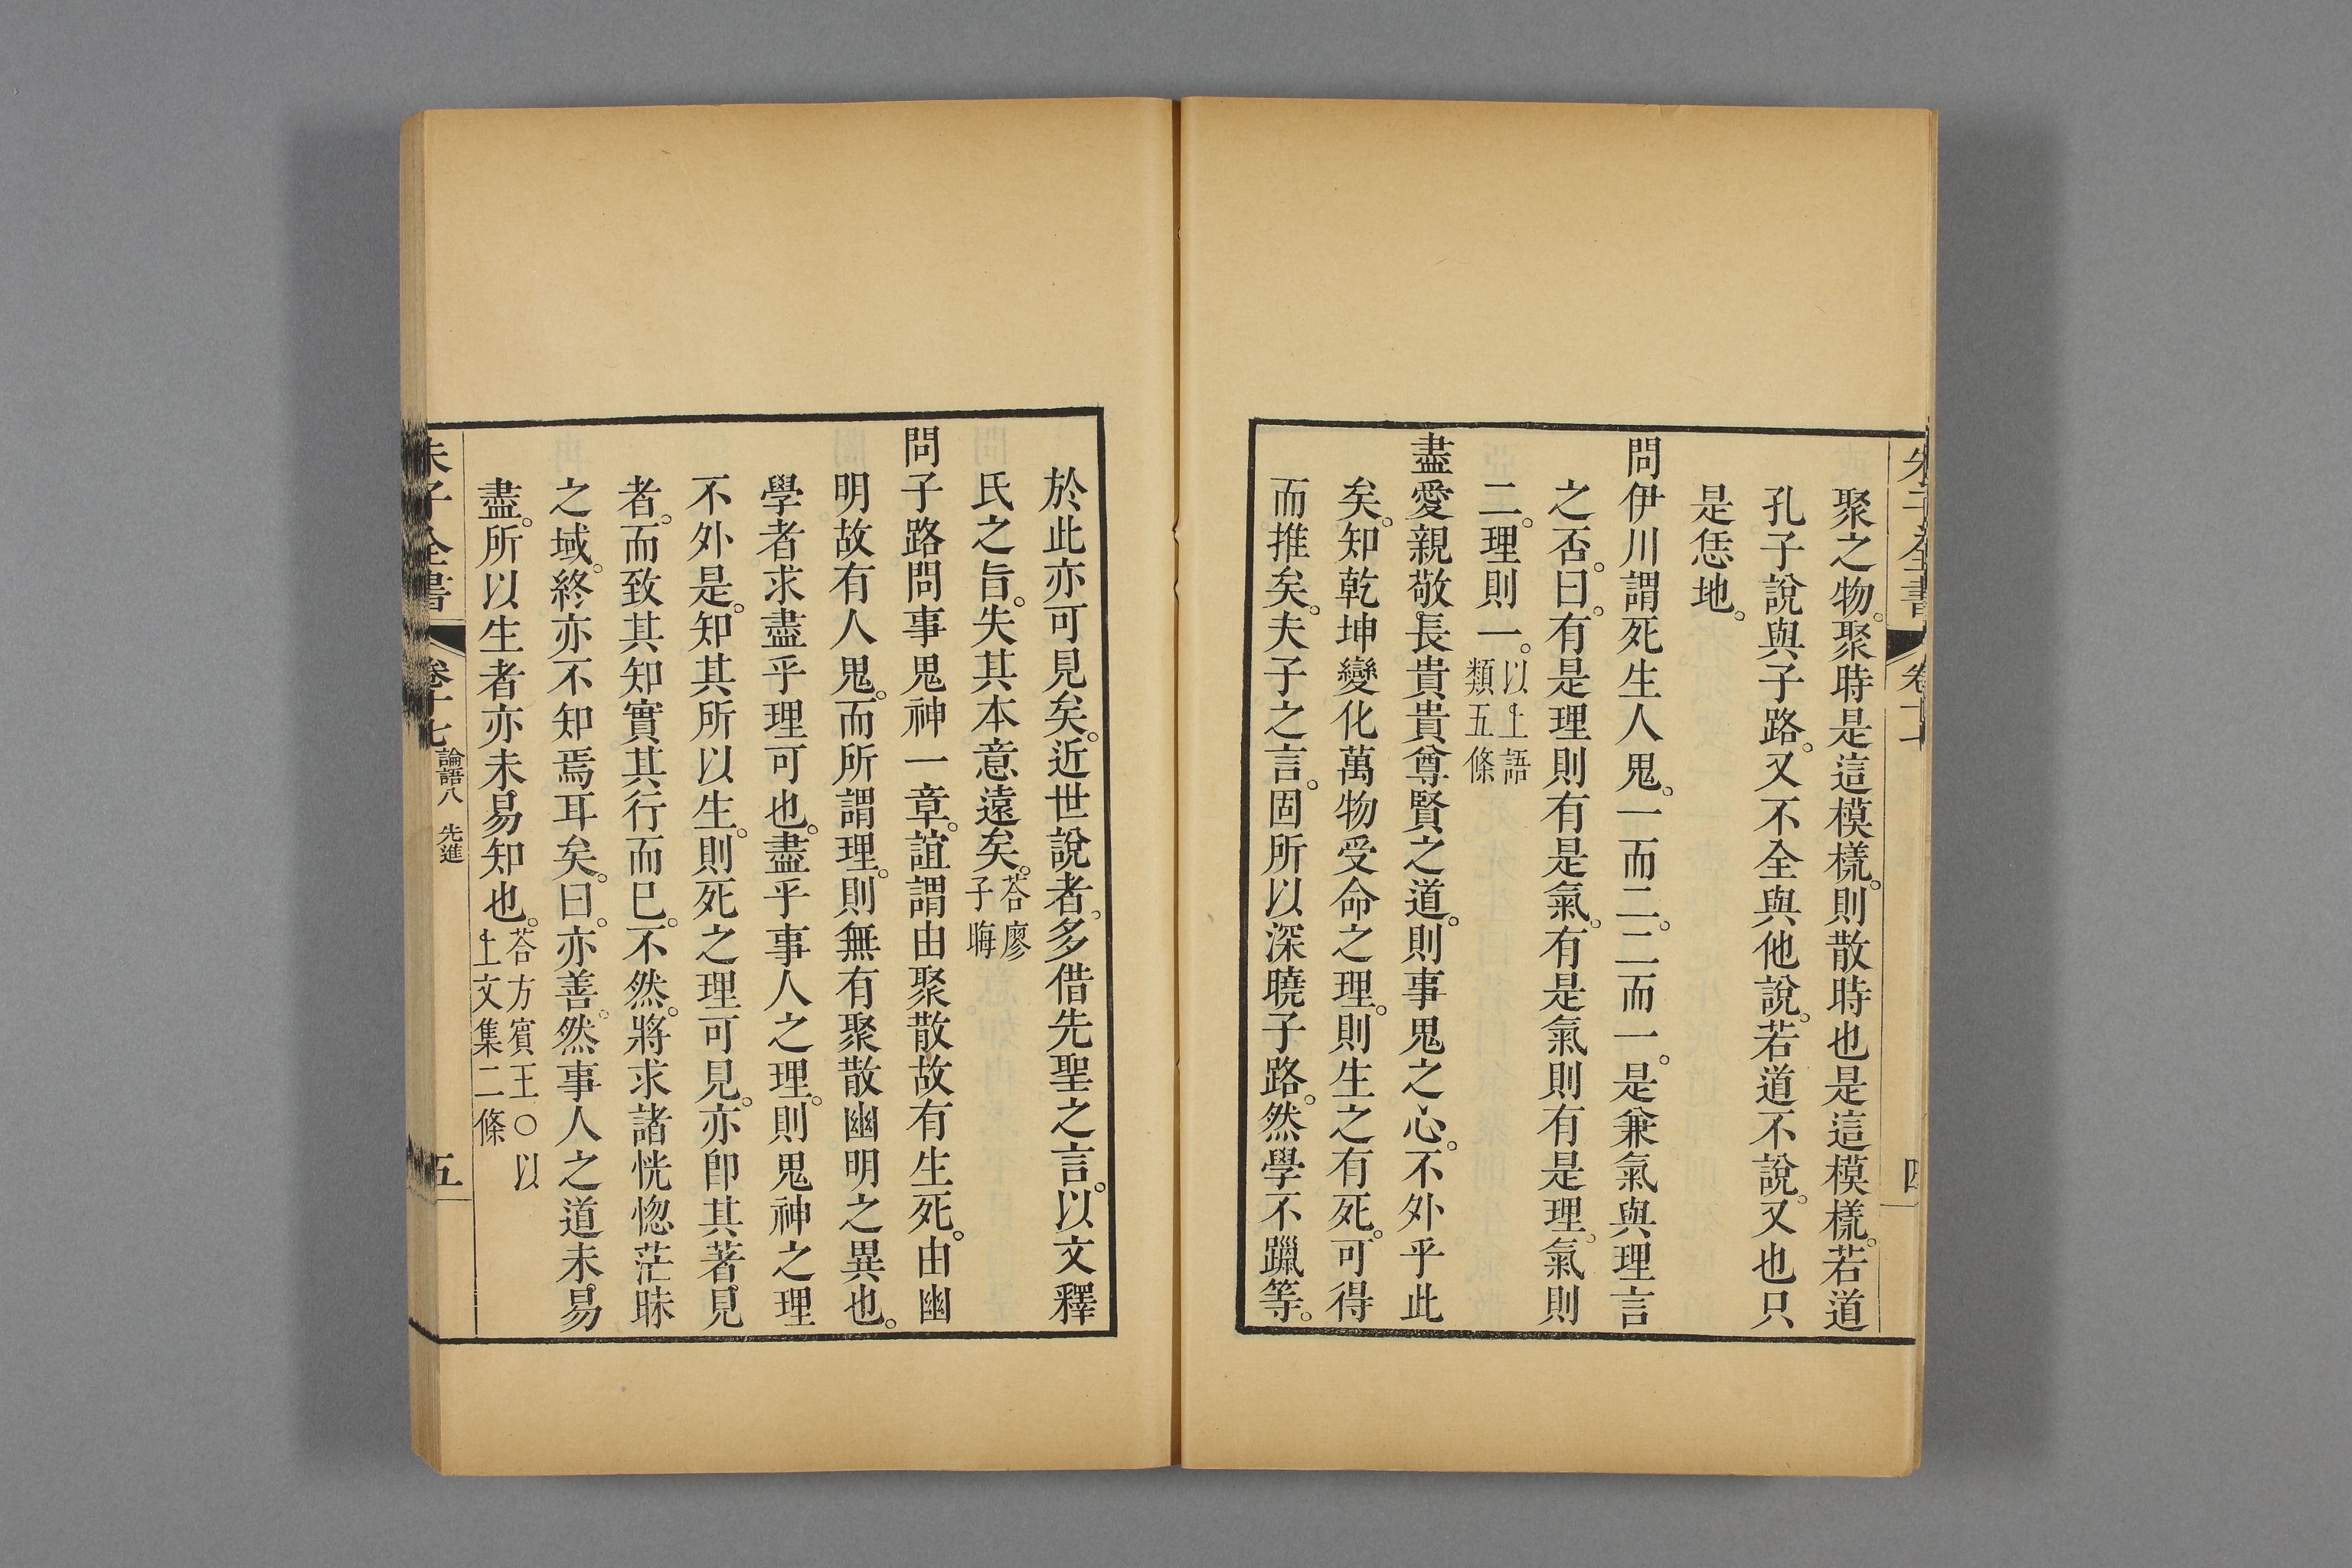 朱子全書 卷十 四
聚之物。聚時是這模樣。則散時也是這模樣。若道
孔子說與子路。又不全與他說。若道不說。又也只
是恁地。
問伊川謂死生人鬼。一而二。二而一。是兼氣與理言
之否。曰。有是理則有是氣。有是氣則有是理。氣則
二。理則一。以上語
類五條
盡愛親敬長貴貴尊賢之道。則事鬼之心。不外乎此
矣。知乾坤變化萬物受命之理。則生之有死。可得
而推矣。夫子之言。固所以深曉子路。然學不躐等。
於此亦可見矣。近世說者。多借先聖之言。以文釋
氏之旨。失其本意遠矣。荅廖
子晦
問子路問事鬼神一章。誼謂由聚散故有生死。由幽
明故有人鬼。而所謂理。則無有聚散幽明之異也。
學者求盡乎理可也。盡乎事人之理。則鬼神之理
不外是。知其所以生。則死之理可見。亦卽其著見
者。而致其知實其行而已。不然。將求諸恍惚茫昧
之域。終亦不知焉耳矣。曰。亦善。然事人之道未易
盡。所以生者亦未易知也。荅方賓王○以
上文集二條
朱子全書 卷十七 論語八 先進 五